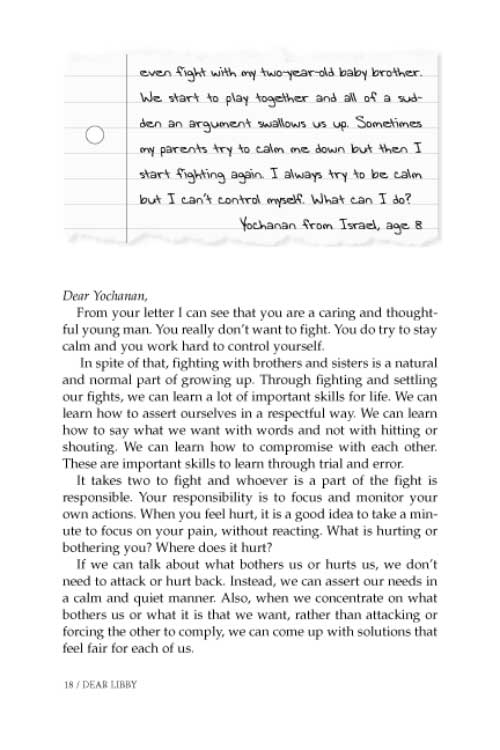 even fight with my two-year-old baby brother.
We start to play together and all of a sud-
den an argument swallows us up. Sometimes
my parents try to calm me down but then I
start fighting again. I always try to be calm
but I can't control myself. What can I do?
Yochanan from Israel, age 8
Dear Yochanan,
From your letter I can see that you are a caring and thought-
ful young man. You really don't want to fight. You do try to stay
calm and you work hard to control yourself.
In spite of that, fighting with brothers and sisters is a natural
and normal part of growing up. Through fighting and settling
our fights, we can learn a lot of important skills for life. We can
learn how to assert ourselves in a respectful way. We can learn
how to say what we want with words and not with hitting or
shouting. We can learn how to compromise with each other.
These are important skills to learn through trial and error.
It takes two to fight and whoever is a part of the fight is
responsible. Your responsibility is to focus and monitor your
own actions. When you feel hurt, it is a good idea to take a min-
ute to focus on your pain, without reacting. What is hurting or
bothering you? Where does it hurt?
If we can talk about what bothers us or hurts us, we don't
need to attack or hurt back. Instead, we can assert our needs in
a calm and quiet manner. Also, when we concentrate on what
bothers us or what it is that we want, rather than attacking or
forcing the other to comply, we can come up with solutions that
feel fair for each of us.
18 / DEAR LIBBY